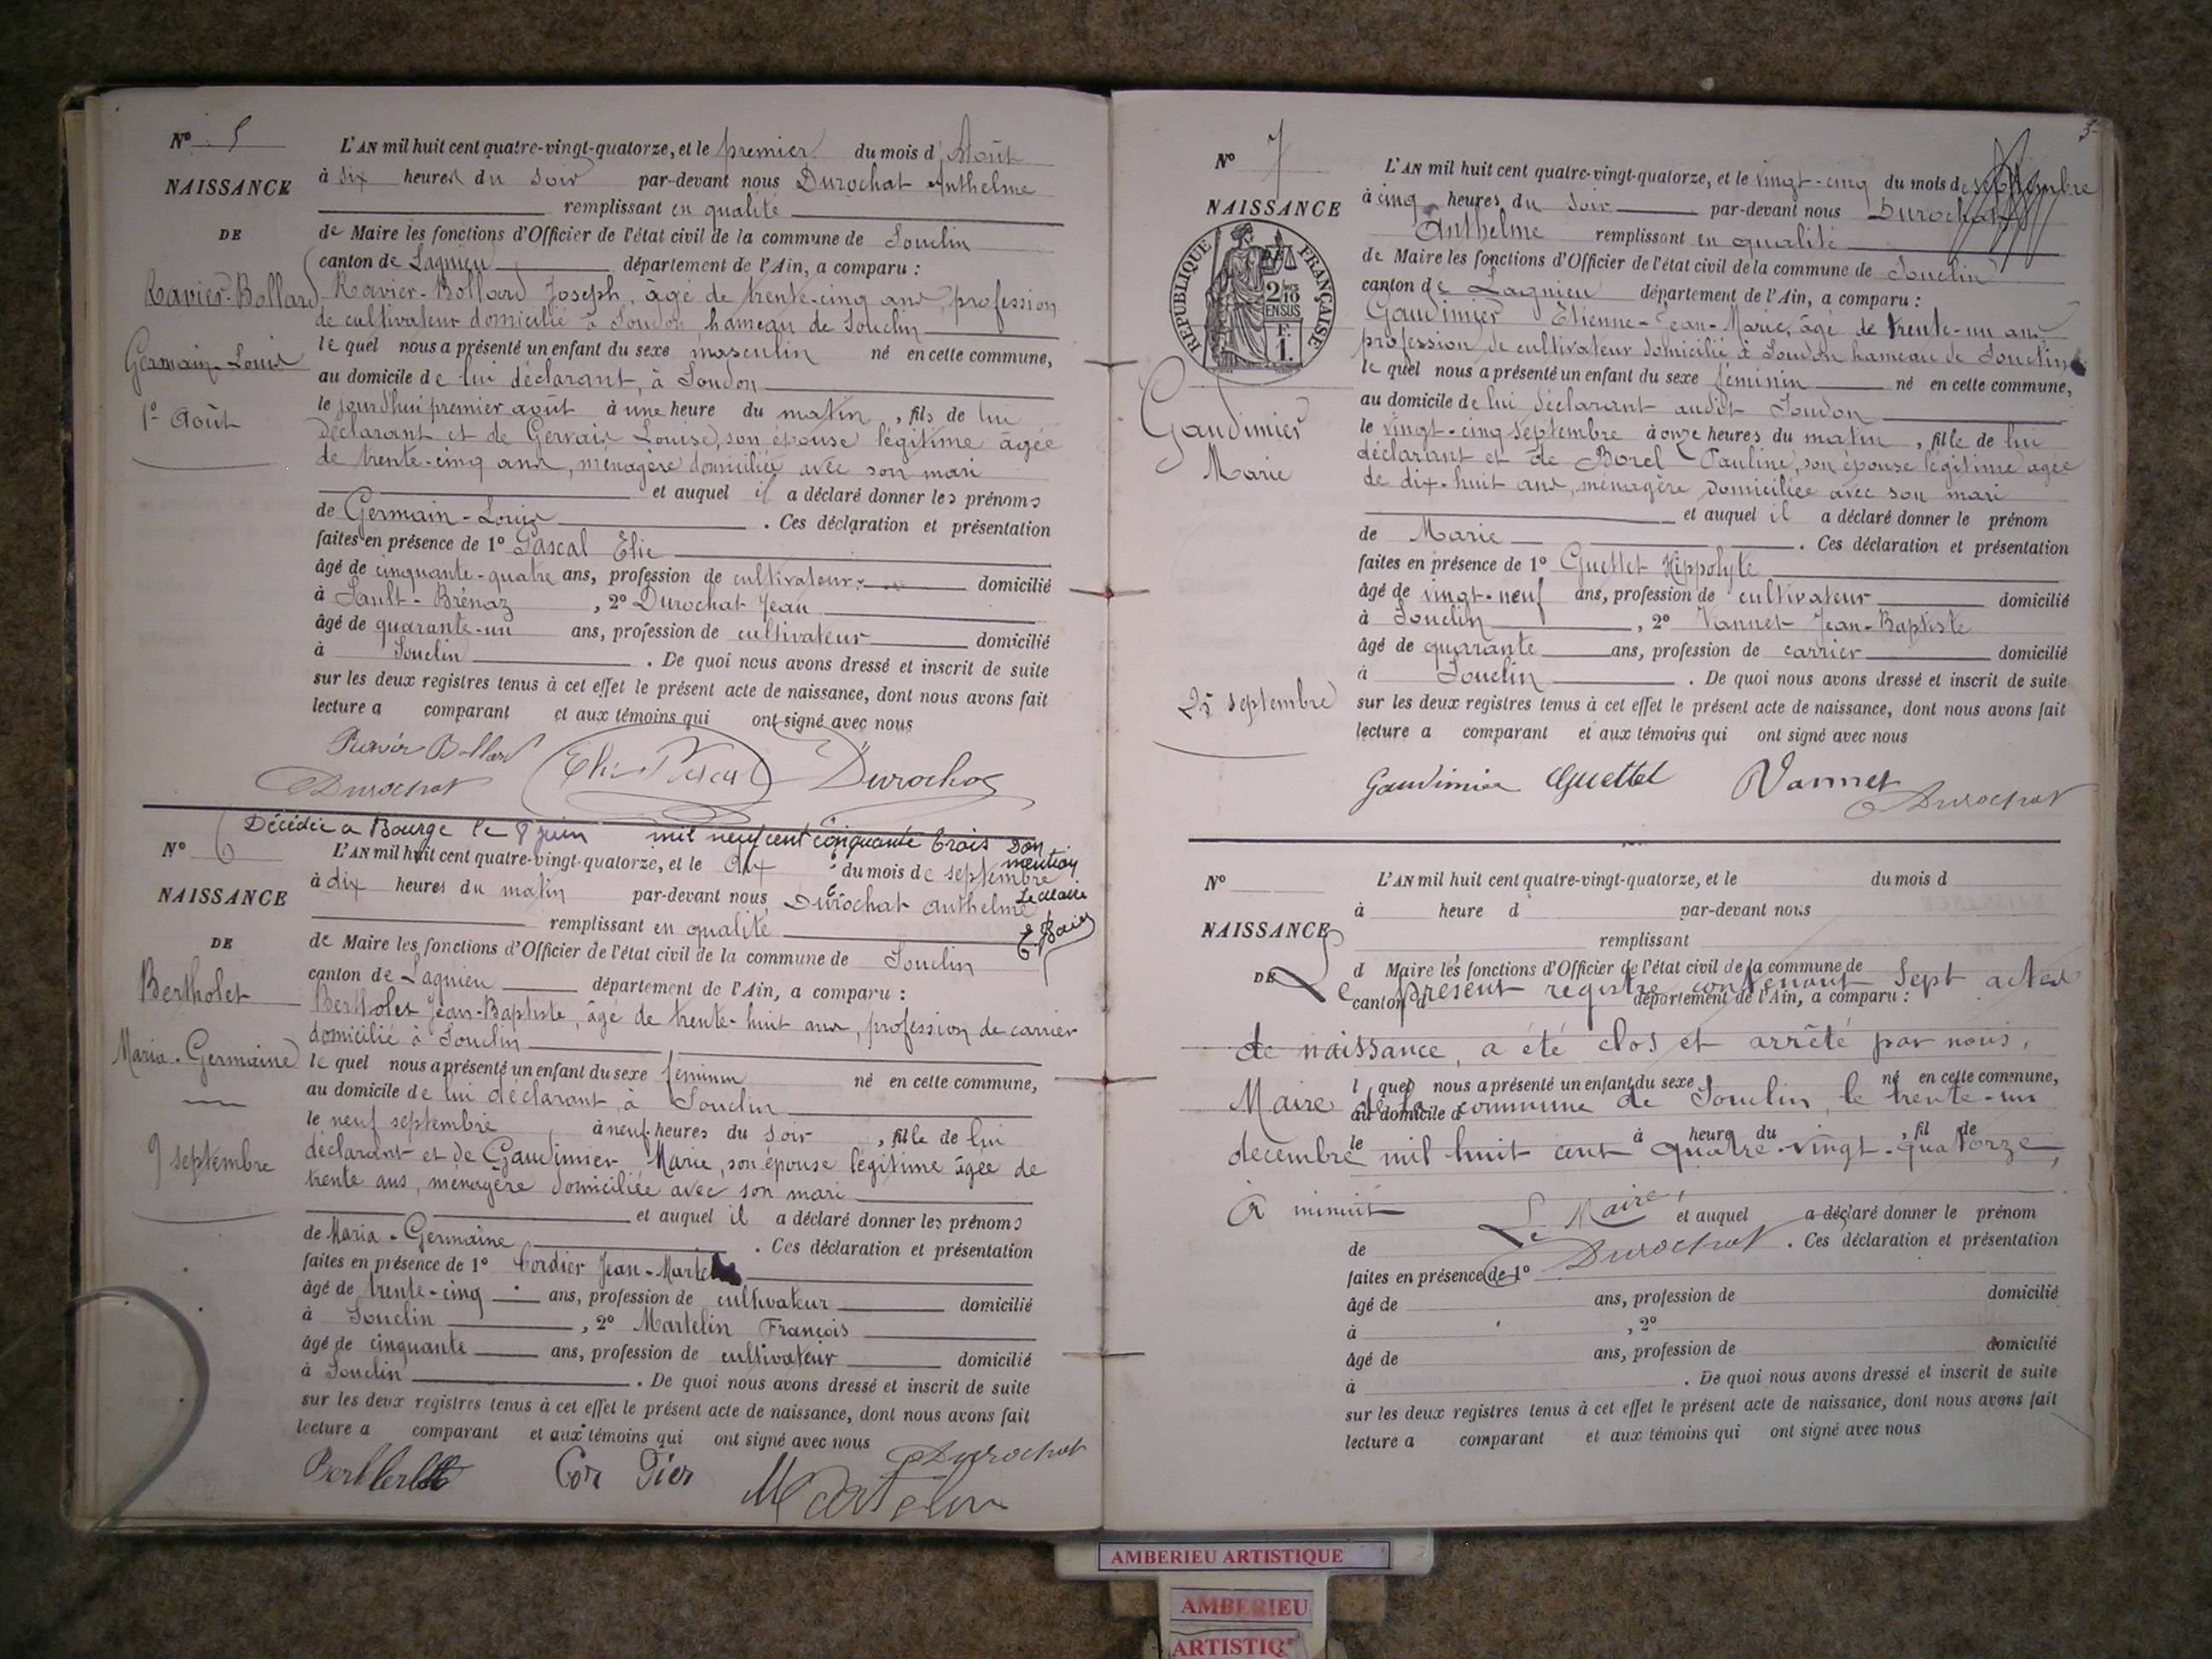 N° 5
NAISSANCE
DE
Ravier-Bollard
Germain-Louis
1er Août
L'AN mil huit cent quatre-vingt-quatorze, et le premier du mois d'Août
à six heures du soir par-devant nous Durochat Anthelme
remplissant en qualité
de Maire les fonctions d'Officier de l'état civil de la commune de Souclin
canton de Lagnieu département de l'Ain, a comparu :
Ravier-Bollard Joseph, âgé de trente-cinq ans, profession
de cultivateur domicilié à Soudon, hameau de Souclin
le quel nous a présenté un enfant du sexe masculin né en cette commune,
au domicile de lui déclarant, à Soudon
le jourd'hui premier août à une heure du matin, fils de lui
déclarant et de Gervais Louise, son épouse légitime âgée
de trente-cinq ans, ménagère domiciliée avec son mari
et auquel il a déclaré donner les prénoms
de Germain-Louis. Ces déclaration et présentation
faites en présence de 1° Pascal Elie
âgé de cinquante-quatre ans, profession de cultivateur domicilié
à Sault-Brénaz, 2° Durochat Jean
âgé de quarante-un ans, profession de cultivateur domicilié
à Souclin. De quoi nous avons dressé et inscrit de suite
sur les deux registres tenus à cet effet le présent acte de naissance, dont nous avons fait
lecture a comparant et aux témoins qui ont signé avec nous
Ravier Bollard Elie Pascal Durochat
Durochat
Décédée a Bourge le 8 juin mil neuf cent cinquante trois Don
mention
Le Maire
N° 6
NAISSANCE
DE
Bertholet
Maria-Germaine
9 septembre
L'AN mil huit cent quatre-vingt-quatorze, et le dix du mois de septembre
à dix heures du matin par-devant nous Durochat Anthelme
remplissant en qualité
de Maire les fonctions d'Officier de l'état civil de la commune de Souclin
canton de Lagnieu département de l'Ain, a comparu :
Bertholet Jean-Baptiste, âgé de trente-huit ans, profession de carrier
domicilié à Souclin
le quel nous a présenté un enfant du sexe féminin né en cette commune,
au domicile de lui déclarant, à Souclin
le neuf septembre à neuf heures du soir, fille de lui
déclarant et de Gaudimier Marie, son épouse légitime âgée de
trente ans, ménagère domiciliée avec son mari
et auquel il a déclaré donner les prénoms
de Maria-Germaine. Ces déclaration et présentation
faites en présence de 1° Cordier Jean-Marie
âgé de trente-cinq ans, profession de cultivateur domicilié
à Souclin, 2° Martelin François
âgé de cinquante ans, profession de cultivateur domicilié
à Souclin. De quoi nous avons dressé et inscrit de suite
sur les deux registres tenus à cet effet le présent acte de naissance, dont nous avons fait
lecture a comparant et aux témoins qui ont signé avec nous
Durochat
Cor Dier Martelin
N° 7
NAISSANCE
RÉPUBLIQUE FRANÇAISE
2/10 EN SUS
F. 1.
Gaudimier
Marie
25 septembre
L'AN mil huit cent quatre-vingt-quatorze, et le vingt-cinq du mois de septembre
à cinq heures du soir par-devant nous Durochat
Anthelme remplissant en qualité
de Maire les fonctions d'Officier de l'état civil de la commune de Souclin
canton de Lagnieu département de l'Ain, a comparu :
Gaudimier Etienne-Jean-Marie, âgé de trente-un ans
profession de cultivateur domicilié à Soudon hameau de Souclin
le quel nous a présenté un enfant du sexe féminin né en cette commune,
au domicile de lui déclarant audit Soudon
le vingt-cinq septembre à onze heures du matin, fille de lui
déclarant et de Borel Pauline, son épouse légitime âgée
de dix-huit ans, ménagère domiciliée avec son mari
et auquel il a déclaré donner le prénom
de Marie. Ces déclaration et présentation
faites en présence de 1° Guettet Hippolyte
âgé de vingt-neuf ans, profession de cultivateur domicilié
à Souclin, 2° Vannet Jean-Baptiste
âgé de quarante ans, profession de carrier domicilié
à Souclin. De quoi nous avons dressé et inscrit de suite
sur les deux registres tenus à cet effet le présent acte de naissance, dont nous avons fait
lecture a comparant et aux témoins qui ont signé avec nous
Gaudimier Guettet Vannet
Durochat
N°
NAISSANCE
DE
L'AN mil huit cent quatre-vingt-quatorze, et le du mois d
à heure d par-devant nous
remplissant
d Maire les fonctions d'Officier de l'état civil de la commune de
Le présent registre contenant sept actes
canton d département de l'Ain, a comparu :
de naissance, a été clos et arrêté par nous,
l quel nous a présenté un enfant du sexe né en cette commune,
Maire de la commune de Souclin, le trente-un
au domicile d
le à heure du , fil de
décembre mil huit cent quatre-vingt-quatorze,
à minuit
Le Maire,
et auquel a déclaré donner le prénom
de . Ces déclaration et présentation
Durochat
faites en présence de 1°
âgé de ans, profession de domicilié
à , 2°
âgé de ans, profession de domicilié
à . De quoi nous avons dressé et inscrit de suite
sur les deux registres tenus à cet effet le présent acte de naissance, dont nous avons fait
lecture a comparant et aux témoins qui ont signé avec nous
AMBERIEU ARTISTIQUE
AMBERIEU